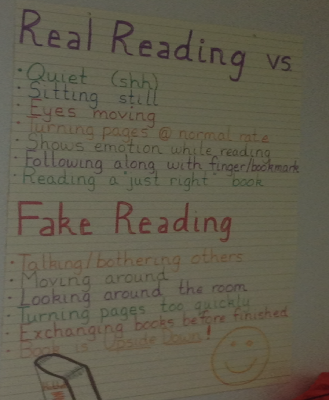 Real Reading vs
• Quiet (shh)
• Sitting still
• Eyes moving
• Turning pages @ normal rate
• Shows emotion while reading
• Following along with finger/bookmark
• Reading a "just right" book
Fake Reading
• Talking/bothering others
• Moving around
• Looking around the room
• Turning pages too quickly
• Exchanging books before finished
• Book is Upside Down!